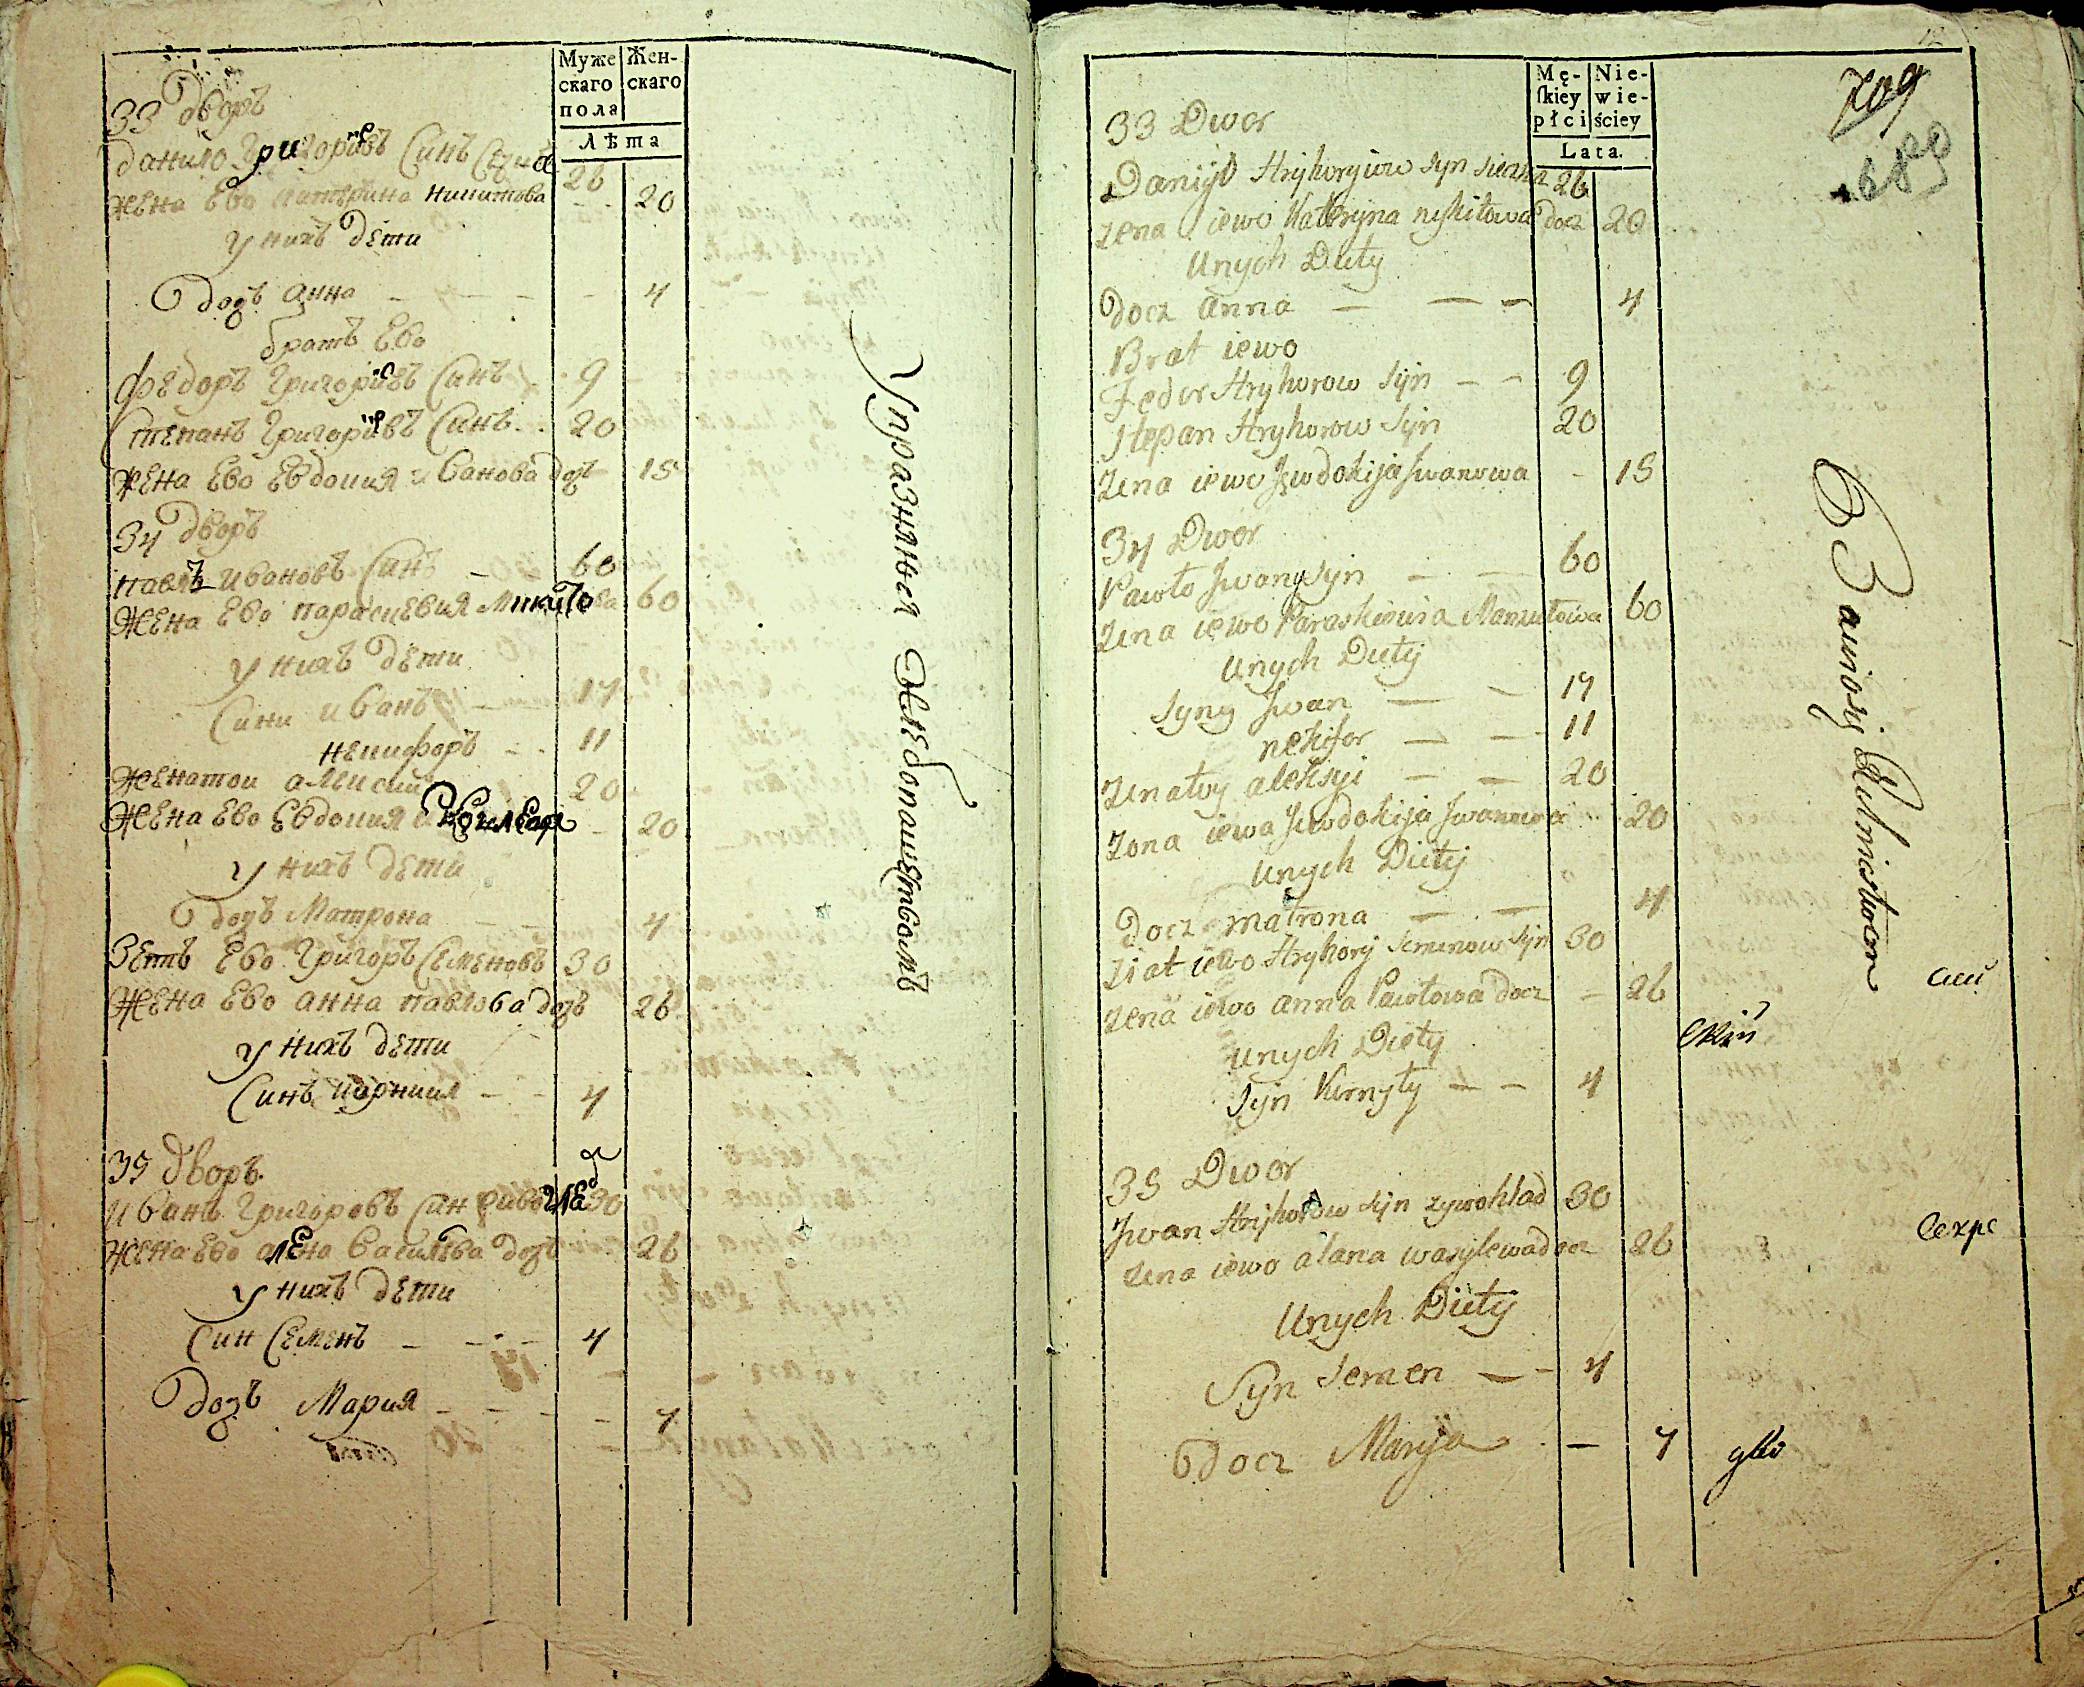 Муже
скаго
пола
Жен-
скаго
Лѣта
33 дворъ
данило Григоріевъ Синъ
26
жена Ево катерина никитова
20
у нихъ дети
дочъ анна - - - -
4
братъ Ево
федоръ Григоріевъ Синъ
9
Степанъ Григоріевъ Синъ
20
жена Ево Евдокия иванова дочъ
15
34 дворъ
павелъ ивановъ Синъ -
60
жена Ево параскевия Микитова
60
у нихъ дети
Сини иванъ -
17
никифоръ - -
11
женатои алексии
20
жена Ево Евдокия
20
у нихъ дети
дочъ Матрона
4
зеть Ево Григоръ Семеновъ
30
жена Ево анна павлова дочъ
26
у нихъ дети
Синъ карнила - -
4
35 дворъ
иванъ Григоровъ Син
30
жена Ево алена василева дочъ
26
у нихъ дети
Син Семенъ - - -
4
дочъ Мария - - - -
7
Упражняные хлебопашествомъ
Mę-
skiey
płci
Nie-
wie-
ściey
Lata.
12
709
688
33 Dwor
Daniyło Hryhoryiow syn
26
zena iewo Kateryna nykitowa docz
20
Unych Diety
docz anna — — —
4
Brat iewo
Fedor Hryhorow Syn — —
9
Stepan Hryhorow Syn
20
zena iewo Jewdokija Jwanowa -
15
34 Dwor
Pawło Jwanysyn — —
60
zena iewo Paraskiewia
60
Unych Diety
Syny Jwan — —
17
nekifor — —
11
zenatoy aleksyi — —
20
zona iewa Jewdokija Jwanowna
20
Unych Diety
docz matrona — —
4
ziat iewo Hryhory Semenow Syn
30
zena iewo anna Pawłowa docz —
26
Unych Diety
Syn Kornyły — —
4
35 Dwor
Jwan Hryhorow syn zywohlad
30
zena iewo alana wasylewa docz
26
Unych Diety
Syn Semen — —
4
docz Maryja —
7
скій
Секре